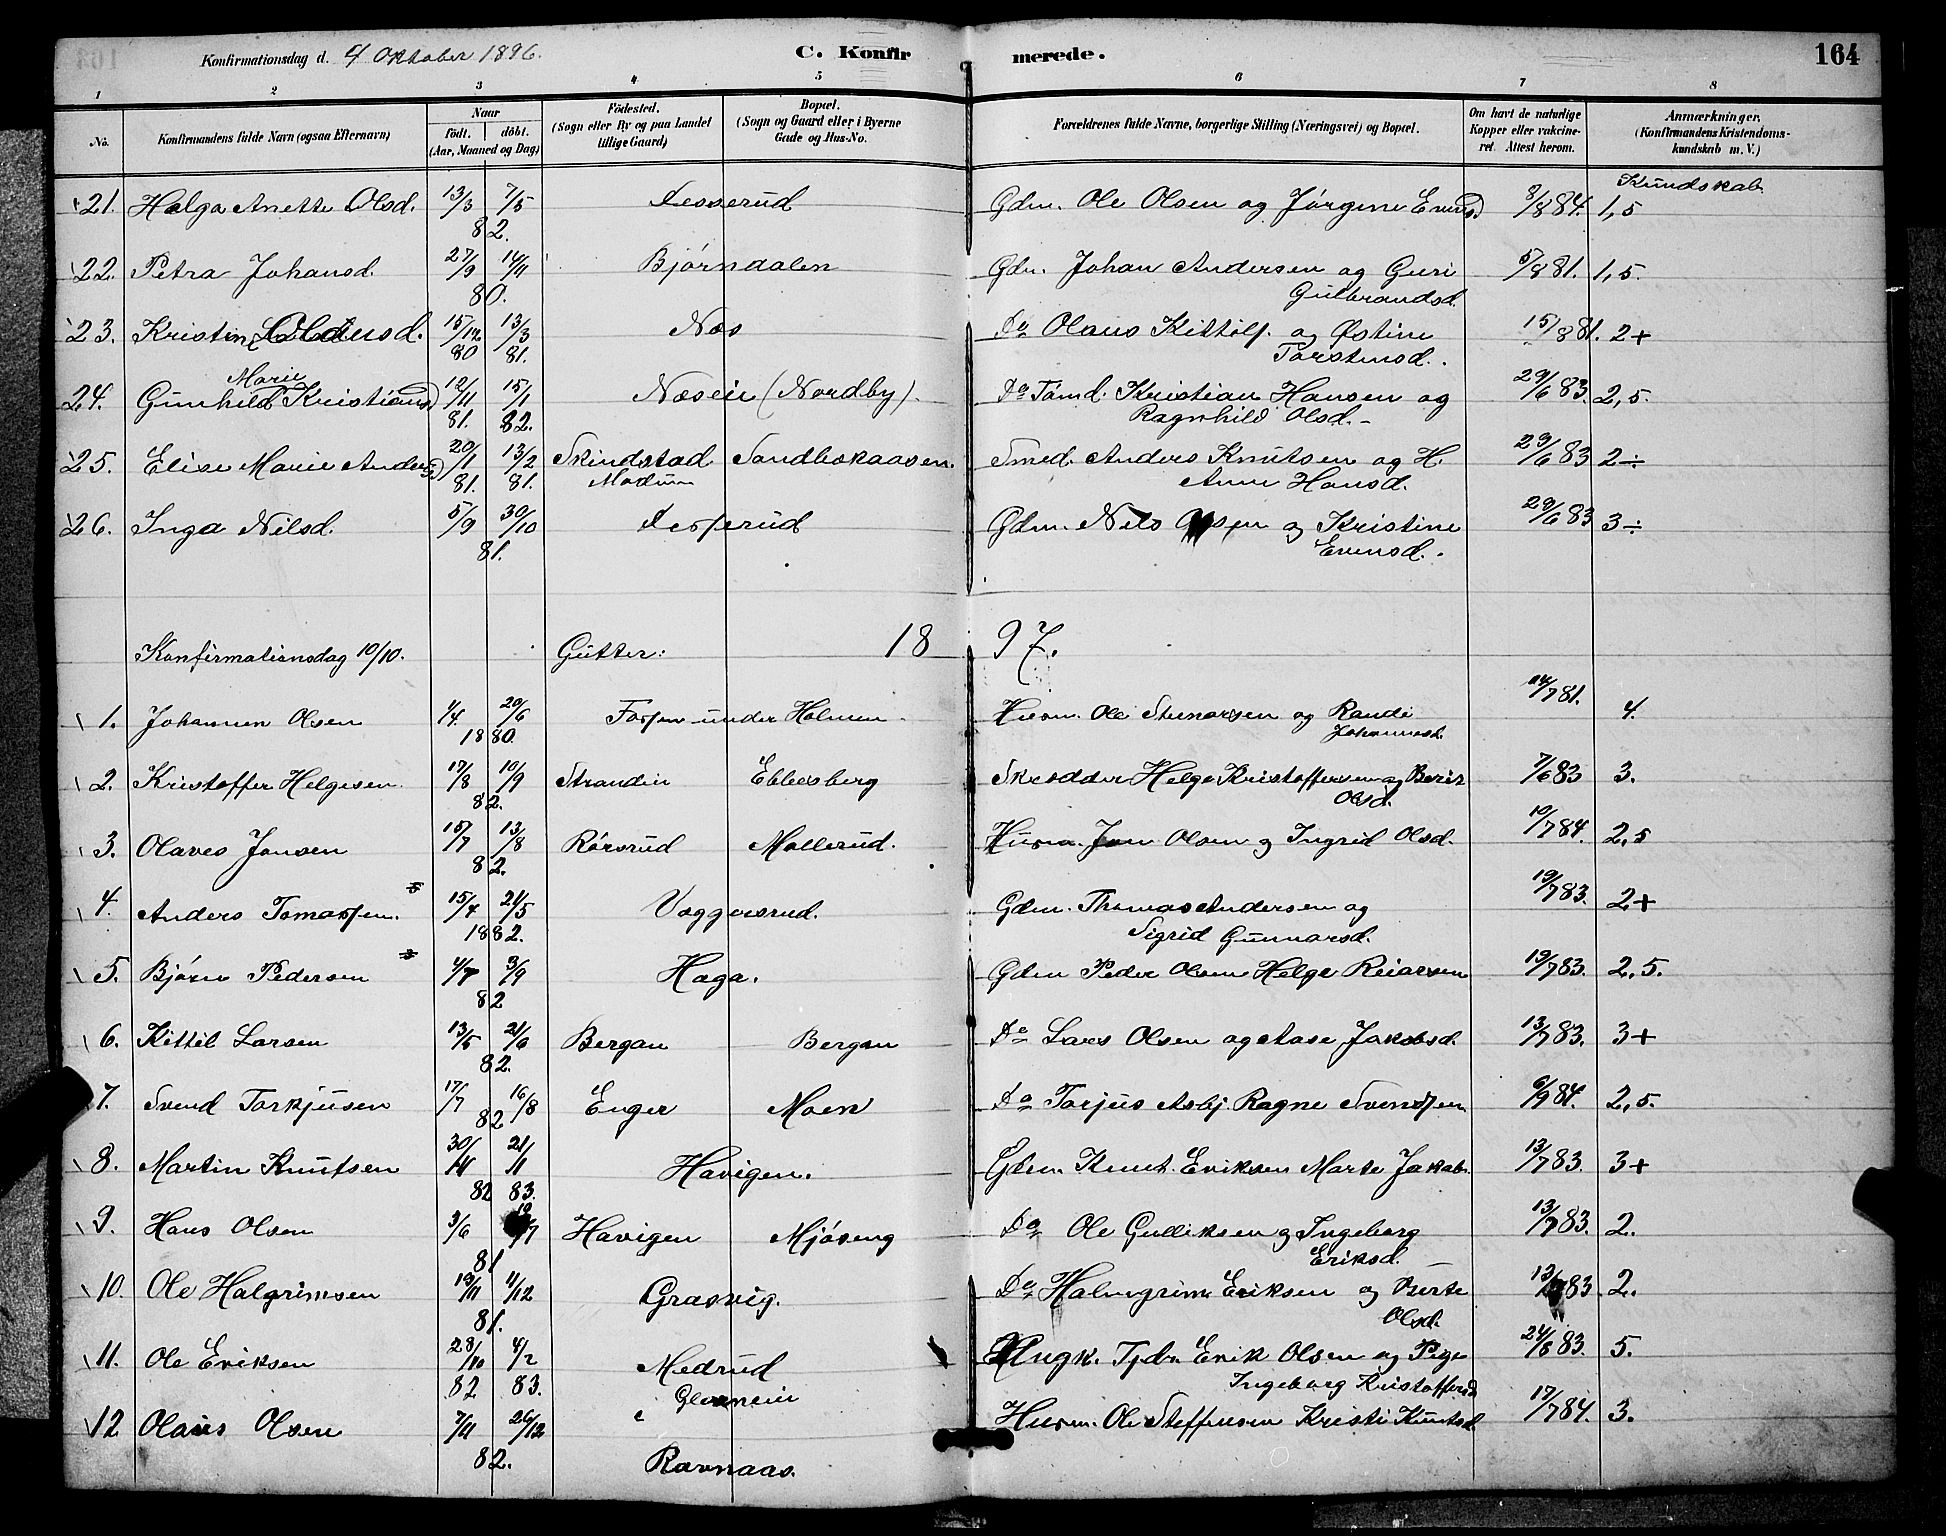 Konfirmationsdag d. 4 Oktober 1896. C. Konfirmerede. 164
1 2 3 4 5 6 7 8
No. Konfirmandens fulde Navn (ogsaa Efternavn) Naar födt. döbt. (Aar, Maaned og Dag) Födested. (Sogn eller By og paa Landet tillige Gaard) Bopæl. (Sogn og Gaard eller i Byerne Gade og Hus-No. Forældrenes fulde Navne, borgerlige Stilling (Næringsvei) og Bopæl. Om havt de naturlige Kopper eller vakcineret. Attest herom. Anmærkninger. (Konfirmandens Kristendomskundskab m. V.)
Kundskab
21. Helga Anette Olsd. 13/3 7/5 82. Lesserud Gdm. Ole Olsen og Jørgine Evensd 8/8 84. 1,5
22. Petra Johansd. 27/9 14/11 80. Bjørndalen Gdm. Johan Andersen og Guri Gulbrandsd. 5/8 81. 1,5
23. Kristine Olausd. 15/12 80 13/3 81. Næs Do Olaus Kittils. og Østine Torstensd. 15/8 81. 2+
24. Gunhild Marie Kristiansd 12/11 81. 15/1 82. Næseie (Nordby). Do Tømd. Kristian Hansen og Ragnhild Olsd. 29/6 83. 2,5.
25. Elise Marie Andersd 20/1 81. 13/2 81. Skindstad Modum Sandbækaasen. Smed. Anders Knutsen og H. Anne Hansd. 29/6 83 2÷
26. Inga Nilsd. 5/9 30/10 81. Lesserud Gdm. Nils Olsen og Kristine Evensd. 29/6 83 3÷
Konfirmationsdag 10/10. Gutter: 18 97.
1. Johannes Olsen 4/4. 20/6 1880. Fossen under Holmen Husm. Ole Stenersen og Randi Johannesd. 14/7 81. 4.
2. Kristoffer Helgesen. 17/8 10/9 82. Strandin Ebbesberg Skrædder Helge Kristoffersen og Berit Olsd. 7/6 83 3.
3. Olaves Jonsen 15/7 13/8 82. Rørsrud Møllerud. Husm. Jon Olsen og Ingrid Olsd. 10/7 84. 2,5
4. Anders Tomassen. 15/4 21/5 1882. Væggersrud. Gdm. Thomas Andersen og Sigrid Gunnarsd. 19/7 83. 2+
5. Bjørn Pedersen 4/7 3/9 82 Haga. Gdm Peder Olsen Helge Reiersen 19/7 83. 2,5.
6. Kittil Larsen 13/5 21/6 82. Bergan Bergan Do Lars Olsen og Aase Jakobsd. 13/7 83. 3+
7. Svend Torkjusen 17/7 16/8 82 Enger Moen Do Torjus Asbj. Ragne Svendsen 6/9 84. 2,5.
8. Martin Knutsen 30/11 82 21/1 83. Havigen. Gdm. Knut Eriksen Marte Jakob. 13/7 83. 3+
9. Hans Olsen 3/6 /7 81 Havigen Mjøseng Do Ole Gulliksen og Ingeborg Eriksd. 13/7 83. 2.
10. Ole Halgrimsen 19/11 4/12 81. Grasvig. Do Halmgrim Eriksen og Berte Olsd. 13/ 83 2.
11. Ole Eriksen 28/10 82 4/2 83. Medrud Glesneeie Ungk. Tjd. Erik Olsen og Pige Ingeborg Kristoffersd 24/8 83. 5.
12 Olaus Olsen 7/11 26/12 82. Ravnaas. Husm. Ole Steffensen Kristi Knutsd. 17/7 84. 3.